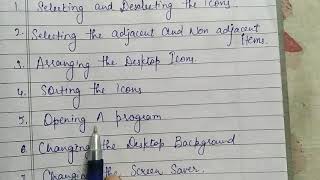 1. Selecting and Deselecting the Icons
2. Selecting the adjacent And Non adjacent
Items.
3. Arranging the Desktop Icons.
4. Sorting the Icons
5. Opening A program
6. Changing the Desktop Background
7. Changing the Screen Saver.